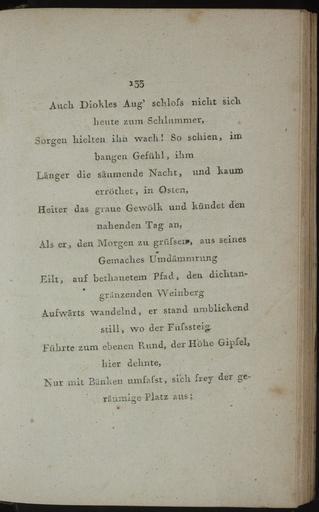 133
Auch Diokles Aug' schloſs nicht sich
heute zum Schlummer,
Sorgen hielten ihn wach! So schien, im
bangen Gefühl, ihm
Länger die säumende Nacht, und kaum
erröthet, in Osten,
Heiter das graue Gewölk und kündet den
nahenden Tag an,
Als er, den Morgen zu grüſsen, aus seines
Gemaches Umdämmrung
Eilt, auf bethauetem Pfad, den dichtan-
gränzenden Weinberg
Aufwärts wandelnd, er stand umblickend
still, wo der Fuſssteig
Führte zum ebenen Rund, der Höhe Gipfel,
hier dehnte,
Nur mit Bänken umfaſst, sich frey der ge-
räumige Platz aus;